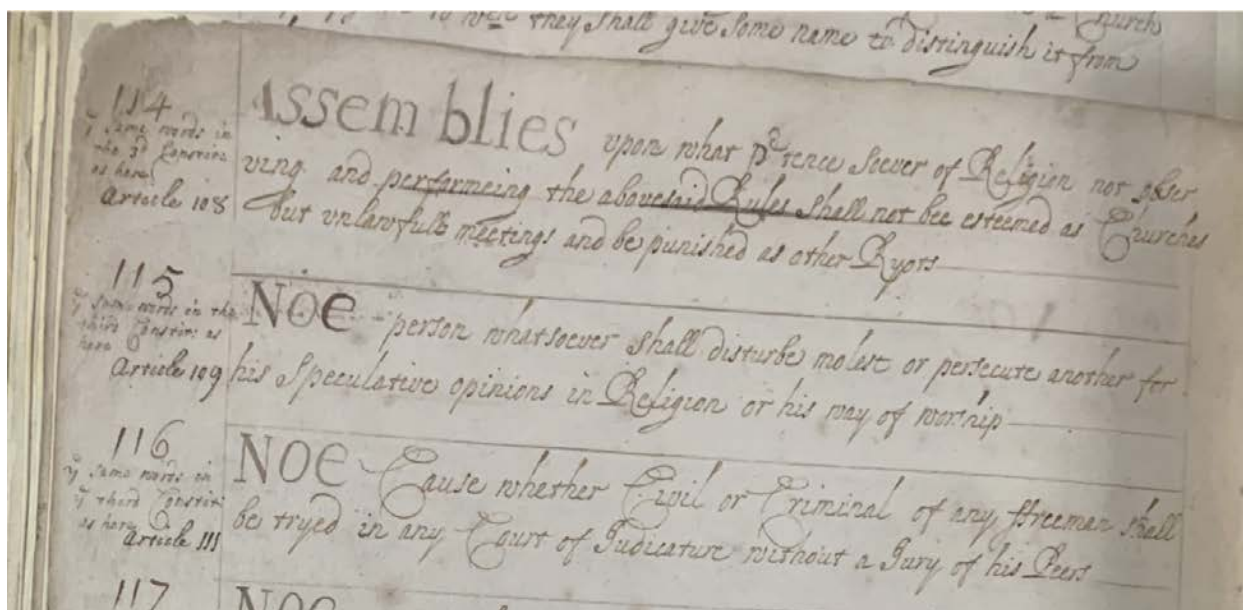 they shall give some name to distinguish it from
Church
114
ÿ same words in
the 3d Constitu:
as here
Article 108
Assemblies upon what p̃tence soever of Religion not obser
ving and performeing the abovesaid Rules shall not bee esteemed as Churches
but unlawfull meetings and be punished as other Ryots
115
ÿ same words in the
third Constit: as
here
Article 109
Noe person whatsoever shall disturbe molest or persecute another for
his speculative opinions in Religion or his way of worship
116
ÿ same words in
ÿ third Constit:
as here
Article 111
Noe Cause whether Civil or Criminal of any ffreeman shall
be tryed in any Court of Judicature without a Jury of his Peers
117
Noe